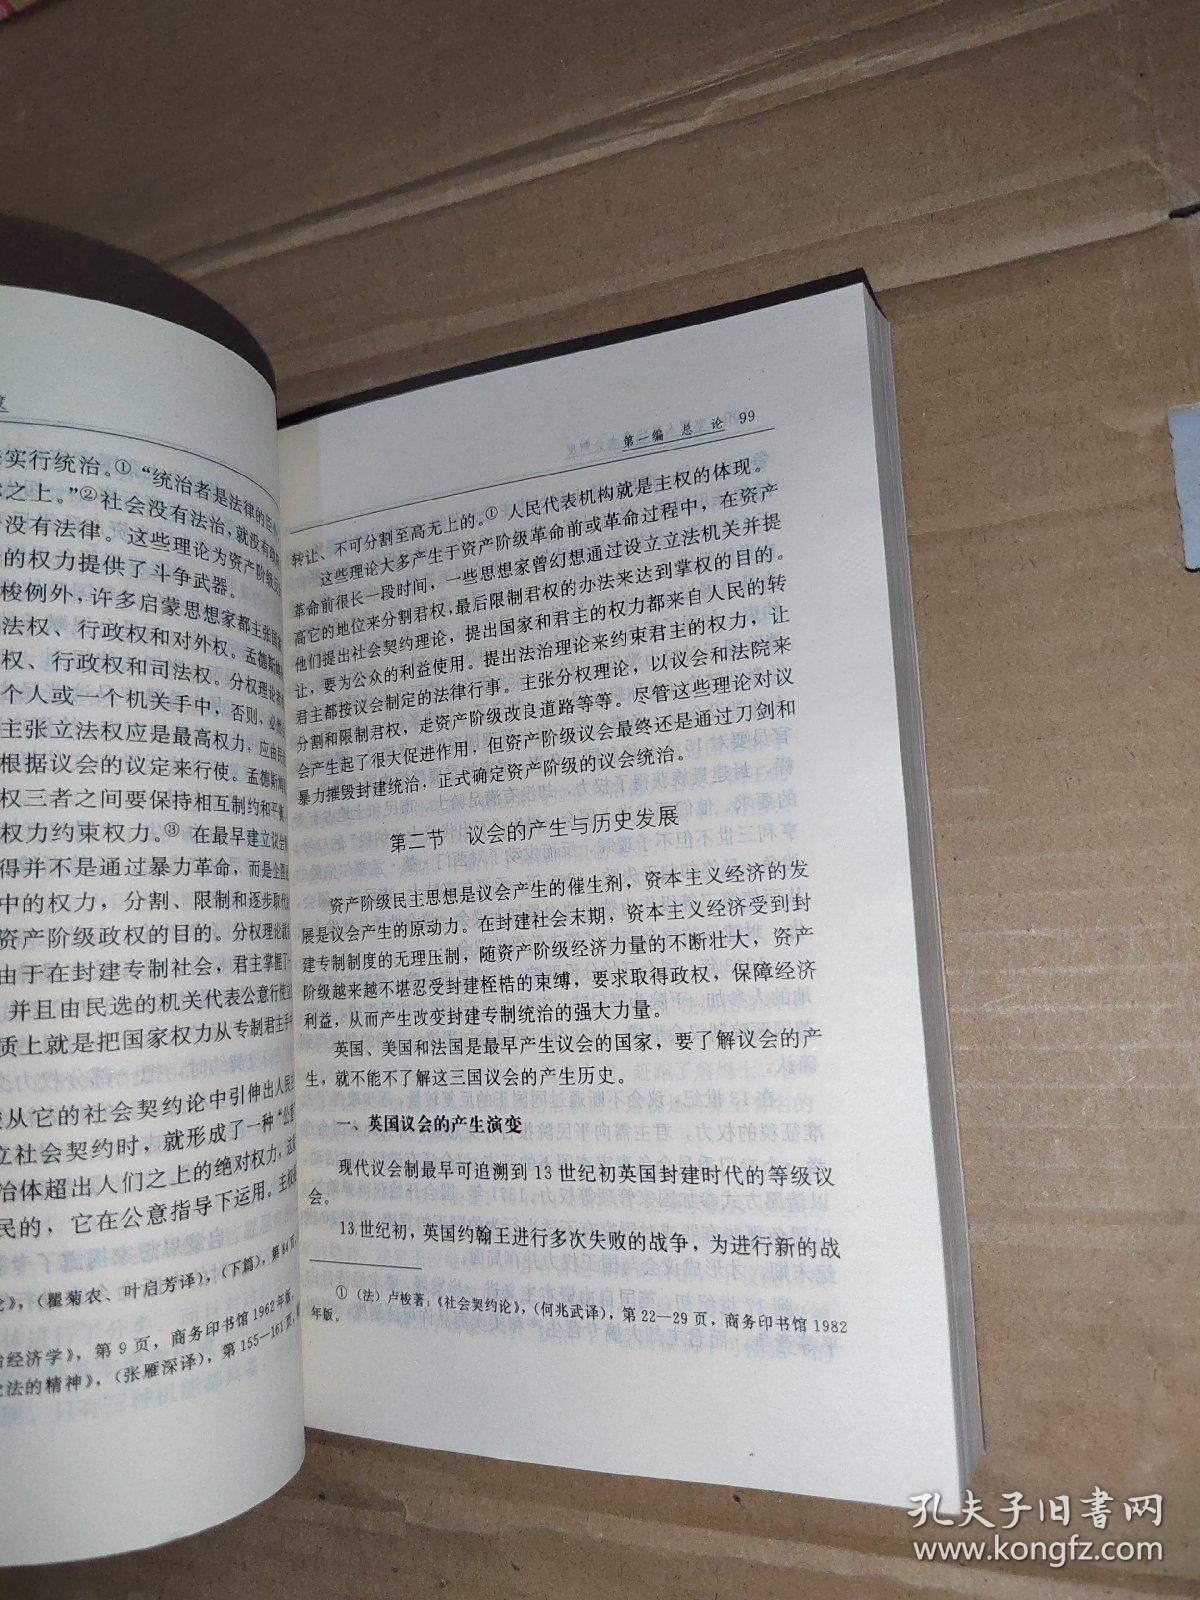 实行统治。① “统治者是法律的
之上。”②社会没有法治,就没有
没有法律。这些理论为资产阶级
的权力提供了斗争武器。
梭例外,许多启蒙思想家都主张
法权、行政权和对外权。孟德斯
权、行政权和司法权。分权理论
个人或一个机关手中,否则,必
主张立法权应是最高权力,应由
根据议会的议定来行使。孟德斯
权三者之间要保持相互制约和平
权力约束权力。③ 在最早建立议会
得并不是通过暴力革命,而是企图
中的权力,分割、限制和逐步取代
资产阶级政权的目的。分权理论
由于在封建专制社会,君主掌握了一
并且由民选的机关代表公意行使
质上就是把国家权力从专制君主手
从它的社会契约论中引伸出人民
立社会契约时,就形成了一种“公
治体超出人们之上的绝对权力,
民的,它在公意指导下运用。主权
》,(瞿菊农、叶启芳译),(下篇),第84页,
治经济学》,第9页,商务印书馆1962年版
法的精神》,(张雁深译),第155—161页,
第一编 总 论 99
转让、不可分割至高无上的。① 人民代表机构就是主权的体现。
这些理论大多产生于资产阶级革命前或革命过程中,在资产
革命前很长一段时间,一些思想家曾幻想通过设立立法机关并提
高它的地位来分割君权,最后限制君权的办法来达到掌权的目的。
他们提出社会契约理论,提出国家和君主的权力都来自人民的转
让,要为公众的利益使用。提出法治理论来约束君主的权力,让
君主都按议会制定的法律行事。主张分权理论,以议会和法院来
分割和限制君权,走资产阶级改良道路等等。尽管这些理论对议
会产生起了很大促进作用,但资产阶级议会最终还是通过刀剑和
暴力摧毁封建统治,正式确定资产阶级的议会统治。
第二节 议会的产生与历史发展
资产阶级民主思想是议会产生的催生剂,资本主义经济的发
展是议会产生的原动力。在封建社会末期,资本主义经济受到封
建专制制度的无理压制,随资产阶级经济力量的不断壮大,资产
阶级越来越不堪忍受封建桎梏的束缚,要求取得政权,保障经济
利益,从而产生改变封建专制统治的强大力量。
英国、美国和法国是最早产生议会的国家,要了解议会的产
生,就不能不了解这三国议会的产生历史。
一、英国议会的产生演变
现代议会制最早可追溯到13世纪初英国封建时代的等级议
会。
13世纪初,英国约翰王进行多次失败的战争,为进行新的战
① (法)卢梭著:《社会契约论》,(何兆武译),第22—29页,商务印书馆1982
年版。
孔夫子旧书网
www.kongfz.com